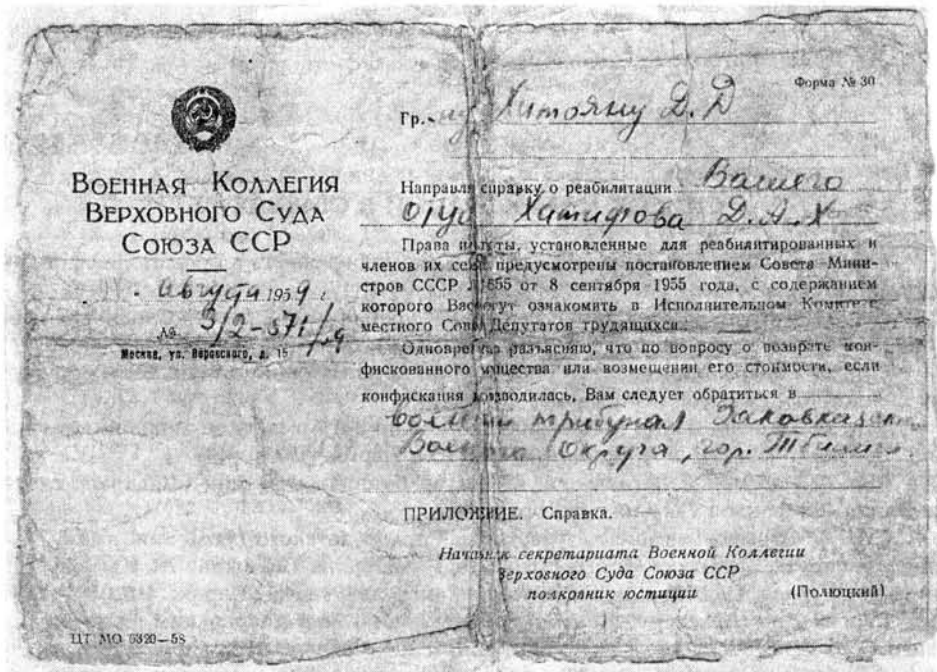 Форма № 30
ВОЕННАЯ КОЛЛЕГИЯ
ВЕРХОВНОГО СУДА
СОЮЗА ССР
августа 1959 г.
№ 3/2-571/
Москва, ул. Воровского, д. 15
Гр.-ну Хитояну Д. Д
Направля справку о реабилитации Вашего
отца Д. А. Х
Права и ты, установленные для реабилитированных и
членов их сем предусмотрены постановлением Совета Мини-
стров СССР 1655 от 8 сентября 1955 года, с содержанием
которого Вас могут ознакомить в Исполнительном Комитете
местного Сов Депутатов трудящихся.
Одновременно разъясняю, что по вопросу о возврате кон-
фискованного имущества или возмещении его стоимости, если
конфискация производилась, Вам следует обратиться в
военный трибунал Закавказск
Военного Округа, гор. Тбилиси
ПРИЛОЖЕНИЕ. Справка.
Начальник секретариата Военной Коллегии
Верховного Суда Союза ССР
полковник юстиции (Полюцкий)
ЦТ МО 6320—58